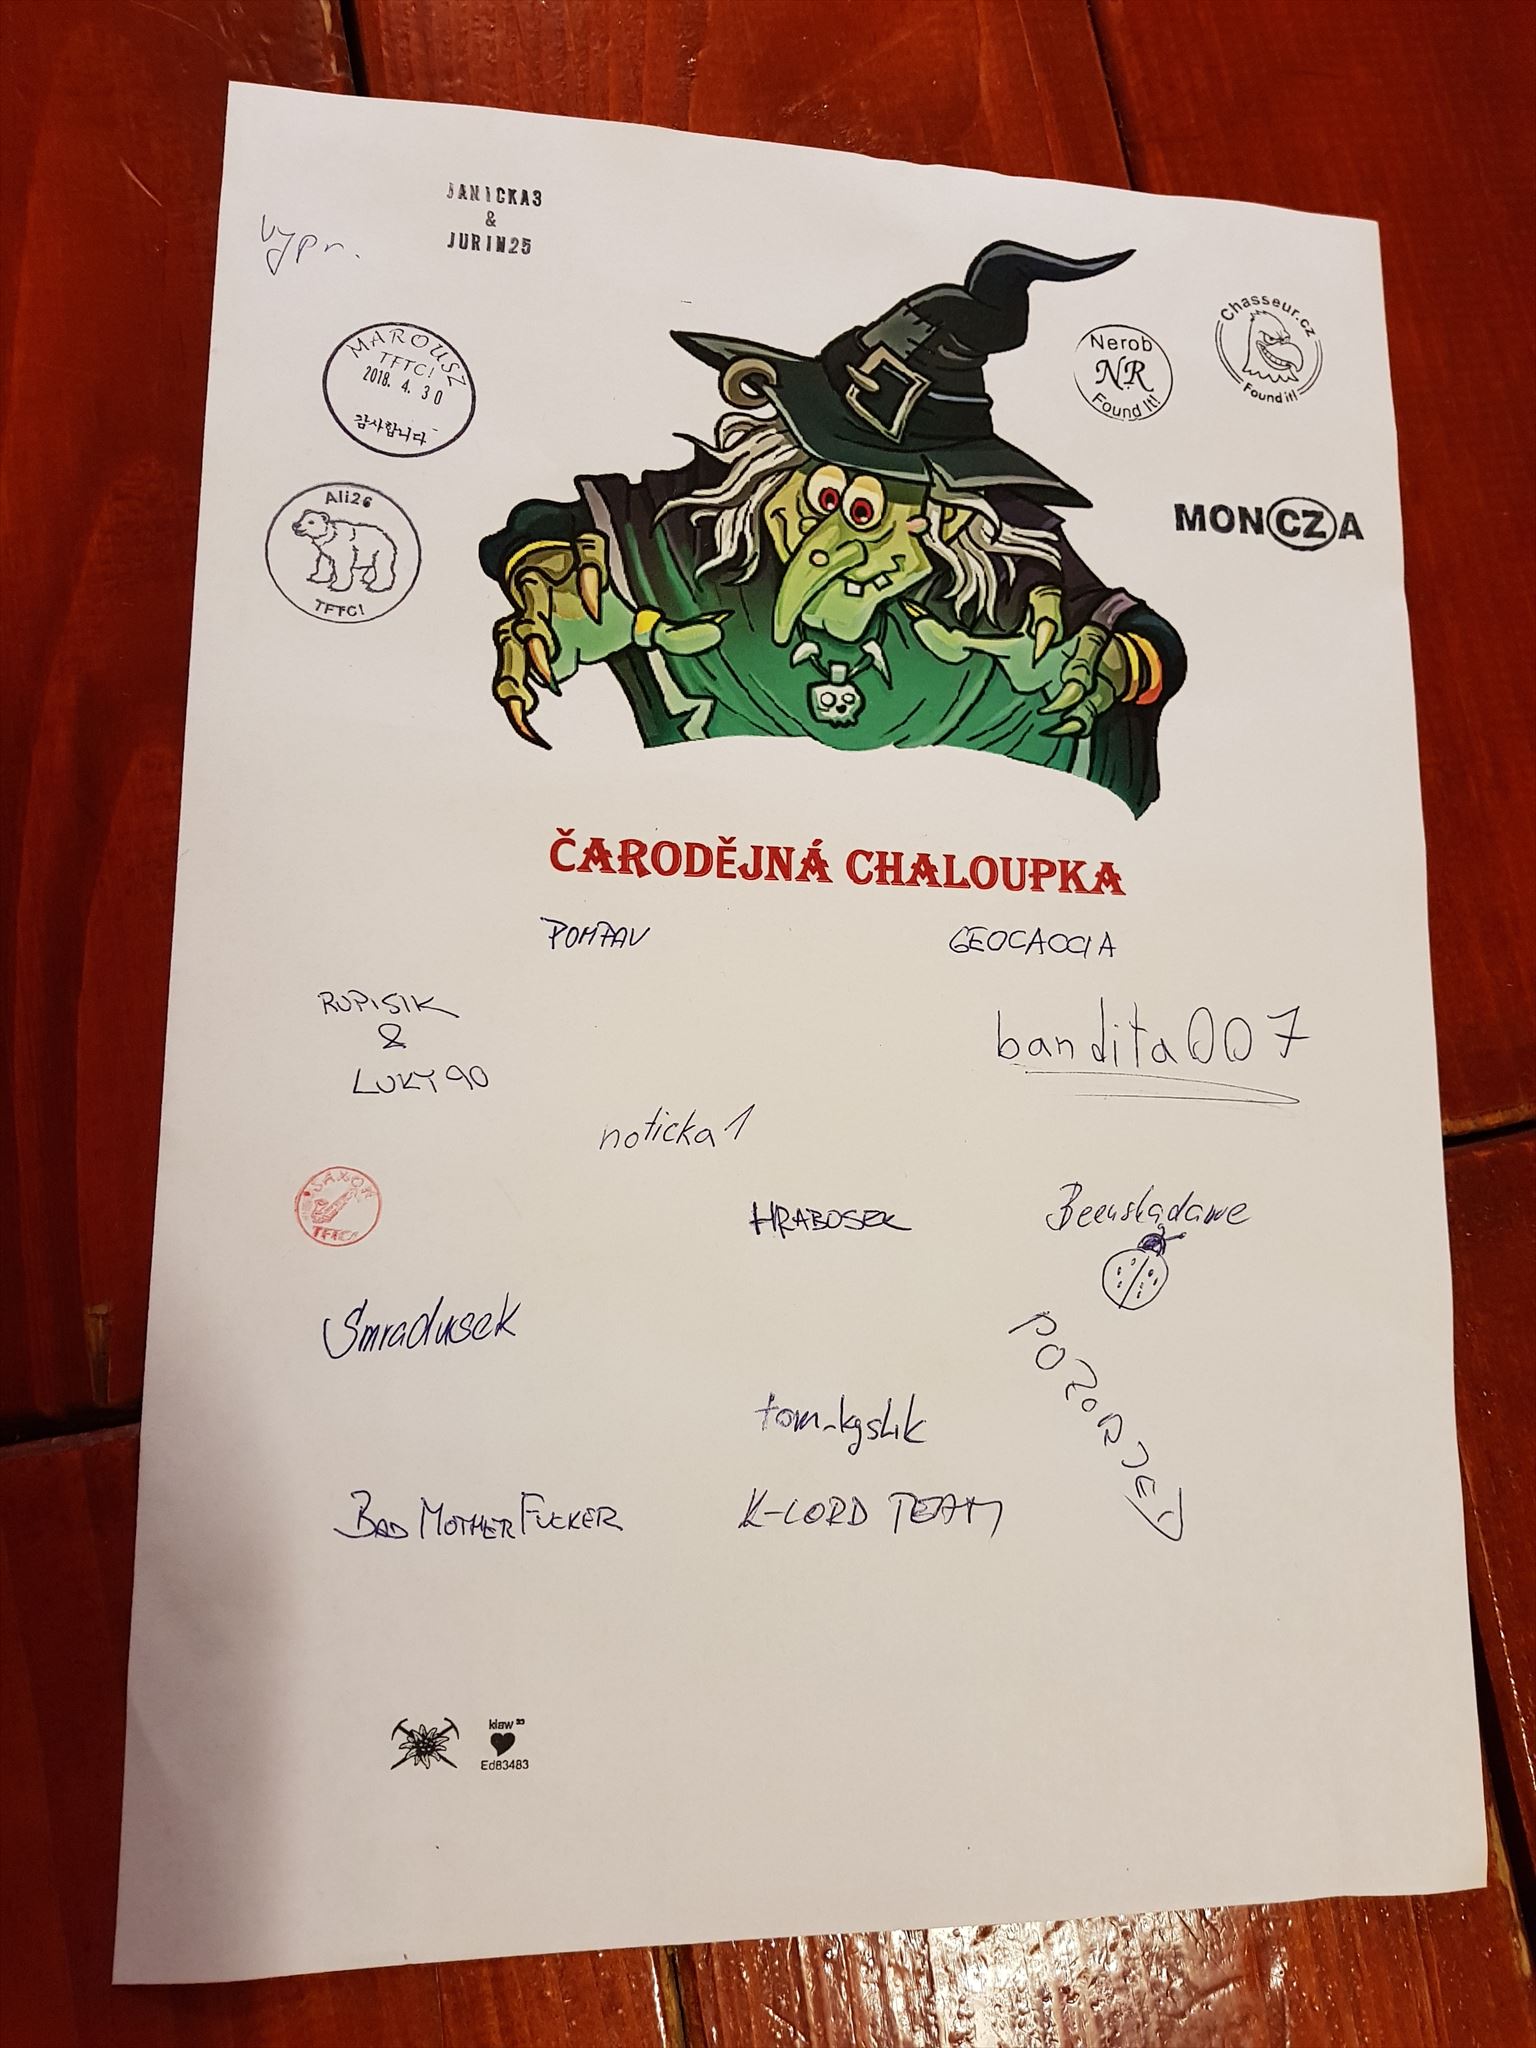 JANICKA3
&
JURIN25
vypr.
MAROUSZ
TFTC!
2018. 4. 30
감사합니다
Nerob
NR
Found It!
Chasseur.cz
Found it!
Ali26
TFTC!
MONCZA
ČARODĚJNÁ CHALOUPKA
POMPAV
GEOCACCIA
RUPISIK
&
LUKY90
bandita007
noticka1
SAXOR
TFTC!
HRABOSEK
Smradusek
POZORJEJ
BAD MOTHERFUCKER
K-LORD TEAM
Ed83483